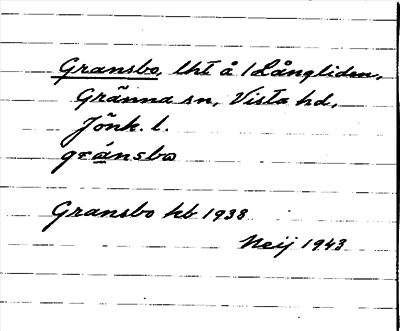 Gransbo, lht å 1 Långliden,
Gränna sn, Vista hd,
Jönk. l.
gránsbo
Gransbo kb 1938
Neij 1943